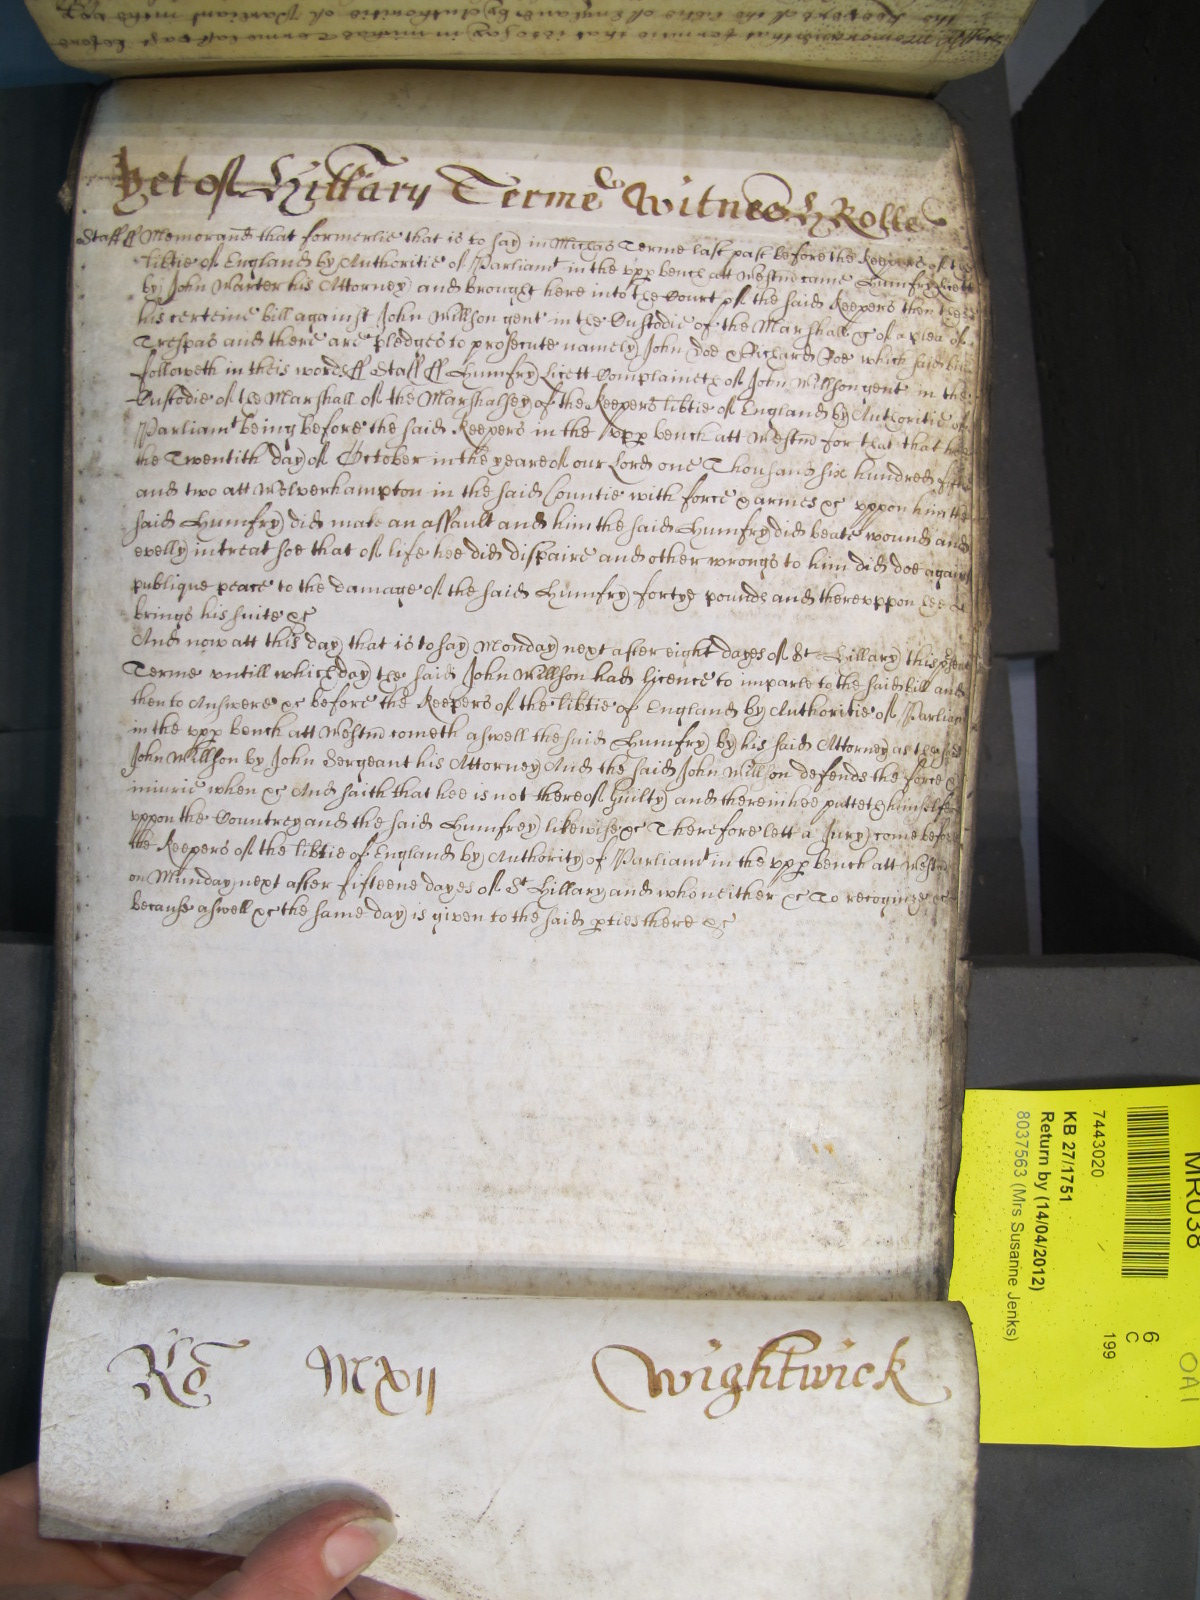 Yet of Hillary Terme Witnes H Rolle
Staff ff Memorand that formerlie that is to say in Michas Terme last past before the Keepers of the
libtie of England by Authoritie of Parliamt in the vpp bench att Westm came Humfry Licett
by John Warter his Attorney and brought here into the Court of the said Keepers then there
his certeine bill against John Willson gent in the Custodie of the Marshall &c of a plea of
Trespas and there are pledges to prosecute namely John Doe & Richard Roe which said bill
followeth in theis words ff Staff ff Humfry Licett Complaineth of John Willson gent in the
Custodie of the Marshall of the Marshalsey of the Keepers libtie of England by Authoritie of
Parliamt being before the said Keepers in the vpp bench att Westm for that that hee
the Twentith day of October in the yeare of our Lord one Thousand six hundred fiftie
and two att Wolverhampton in the said Countie with force & armes &c vppon him the
said Humfry did make an assault and him the said Humfry did beate wound and
evelly intreat soe that of life hee did dispaire and other wrongs to him did doe against
publique peace to the damage of the said Humfry fortye pounds and therevppon hee
brings his suite &c
And now att this day that is to say Monday next after eight dayes of St Hillary this psent
Terme vntill which day the said John Willson had licence to imparle to the said bill and
then to Answere &c before the Keepers of the libtie of England by Authoritie of Parliamt
in the vpp bench att Westm cometh aswell the said Humfry by his said Attorney as the said
John Willson by John Sergeant his Attorney And the said John Willson defends the force &
iniurie when &c And saith that hee is not thereof Guilty and therein hee putteth himselfe
vppon the Countrey and the said Humfrey likewise &c Therefore lett a Jury come before
the Keepers of the libtie of England by Authority of Parliamt in the vpp bench att Westm
on Munday next after fifteene dayes of St Hillary and who neither &c To recognize &c
because aswell &c the same day is given to the said pties there &c
Ro MXII Wightwick
MR038
7443020
KB 27/1751
Return by (14/04/2012)
8037563 (Mrs Susanne Jenks)
6
C
199
OA1